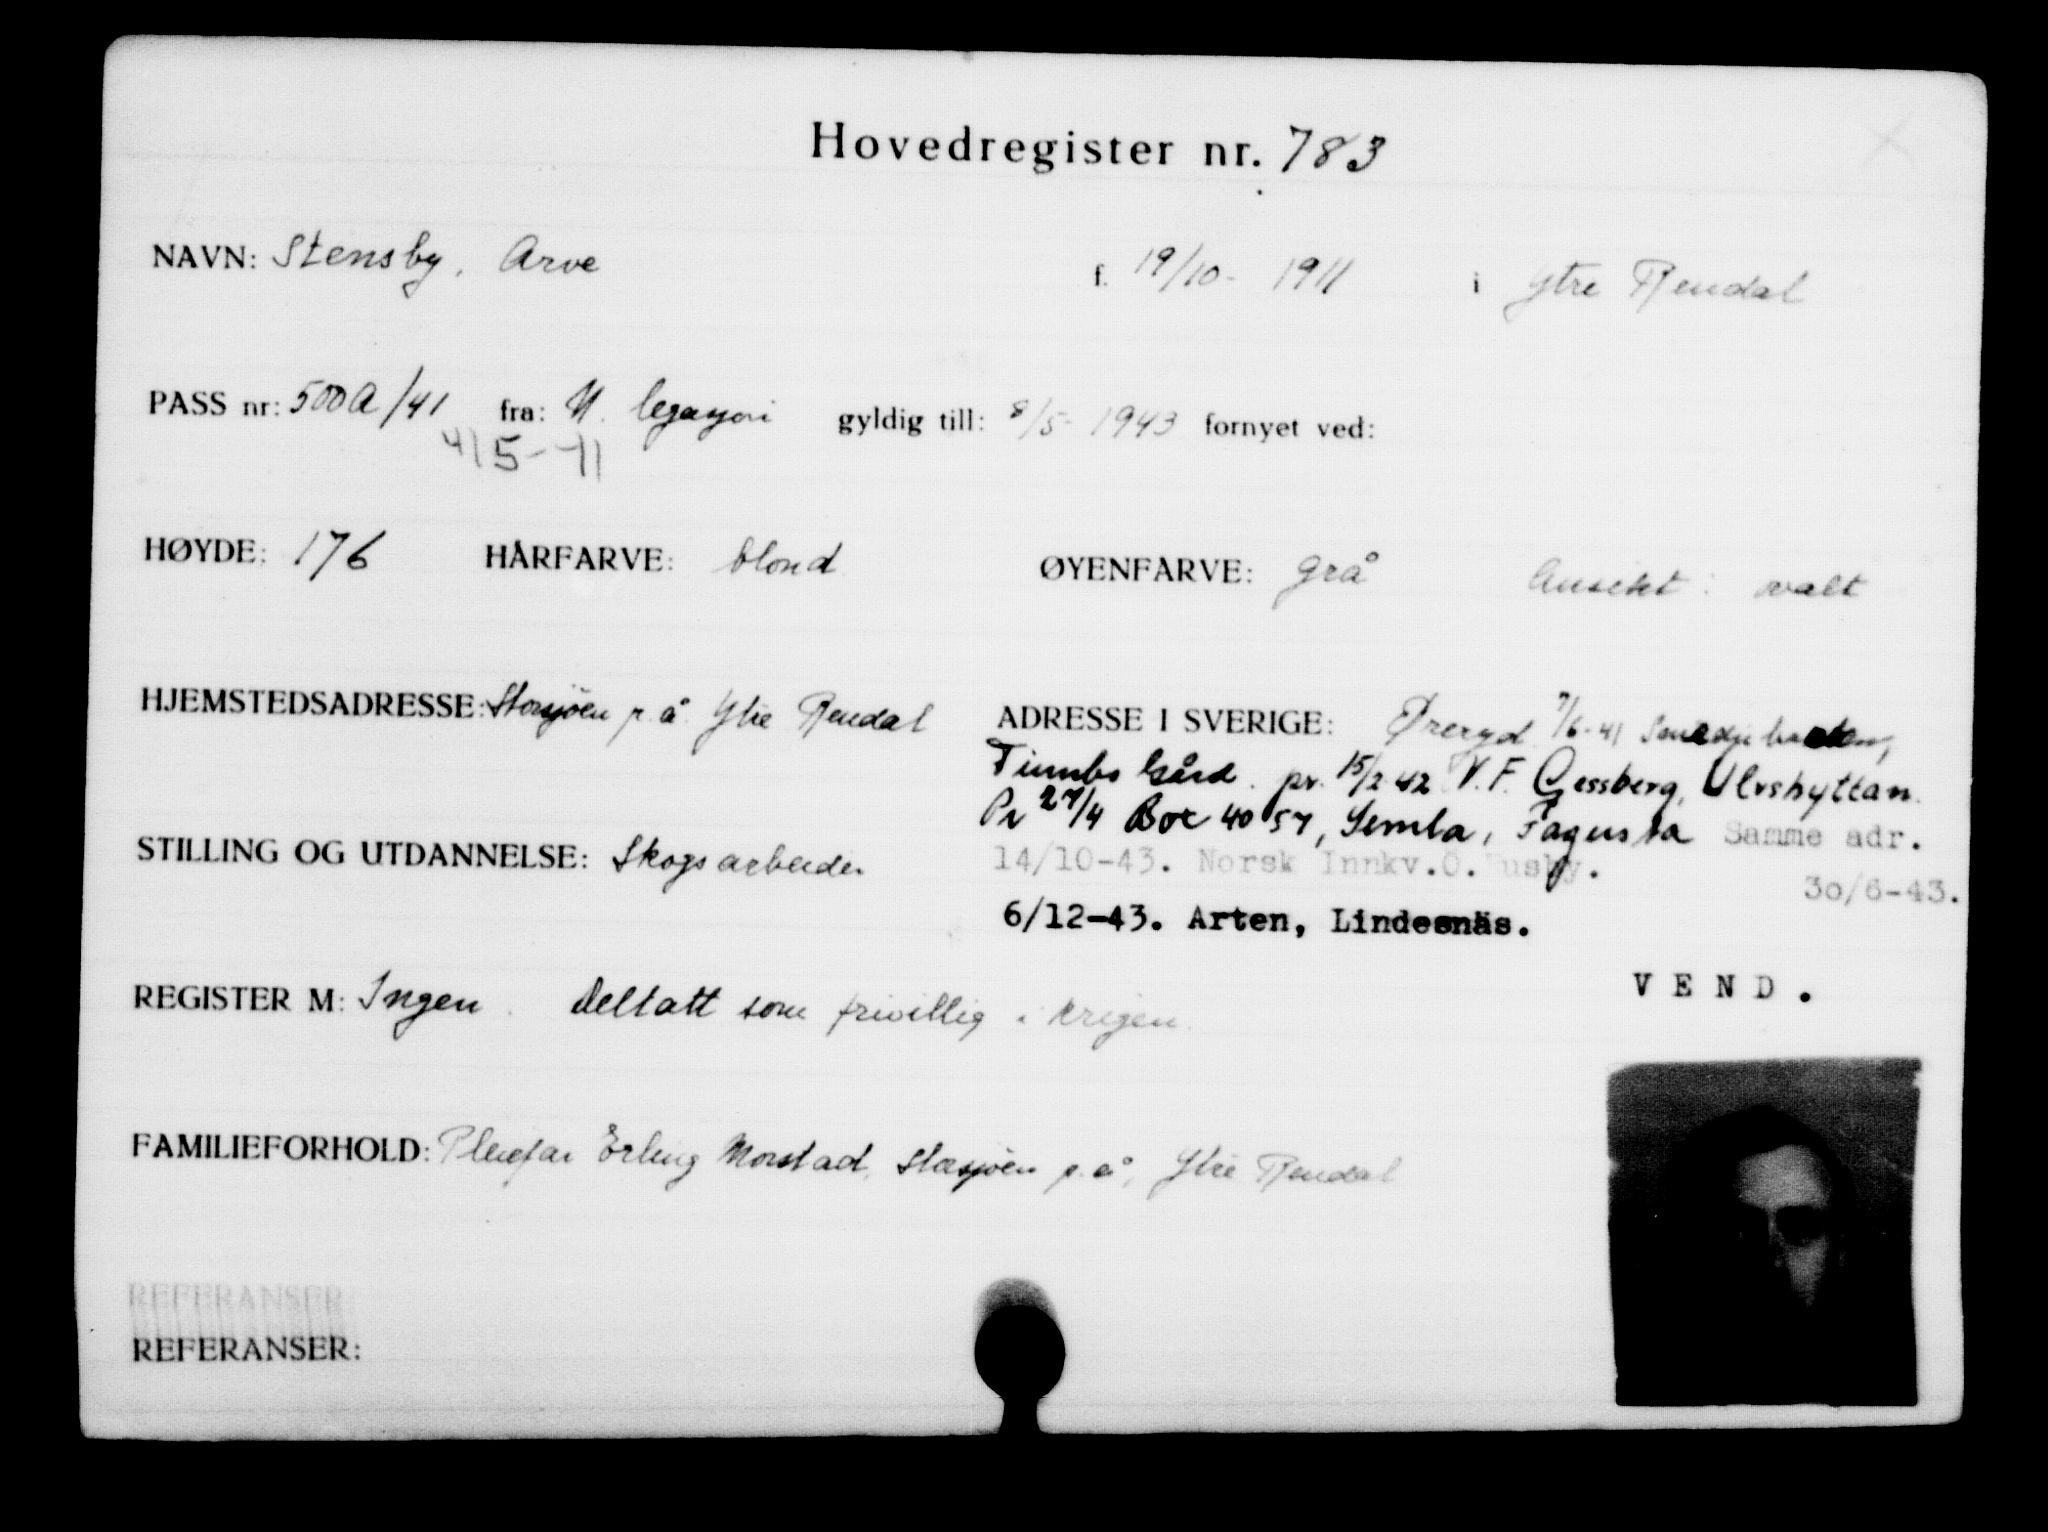 Hovedregister nr. 783
NAVN: Stensby, Arve f. 19/10- 1911 i Ytre Rendal
PASS nr: 500A/41 fra: N. legasjon gyldig till: 8/5- 1943 fornyet ved:
4/5-41
HØYDE: 176 HÅRFARVE: blond ØYENFARVE: grå Ansikt: ovalt
HJEMSTEDSADRESSE: Storsjøen p.å. Ytre Rendal ADRESSE I SVERIGE: Øreryd 7/6-41
Gård. pr. 15/2 42 V.F. Gessberg, Ulvshyttan.
Pr 27/4 Box 4057, Semla, Fagersta Samme adr.
30/6-43.
STILLING OG UTDANNELSE: Skogsarbeider 14/10-43. Norsk Innkv.O. Husby.
6/12-43. Arten, Lindesnäs.
REGISTER M: Ingen. Deltatt som frivillig i krigen.
VEND.
FAMILIEFORHOLD: Pleiefar Erling Morstad, Storsjøen p.å, Ytre Rendal
REFERANSER
REFERANSER: